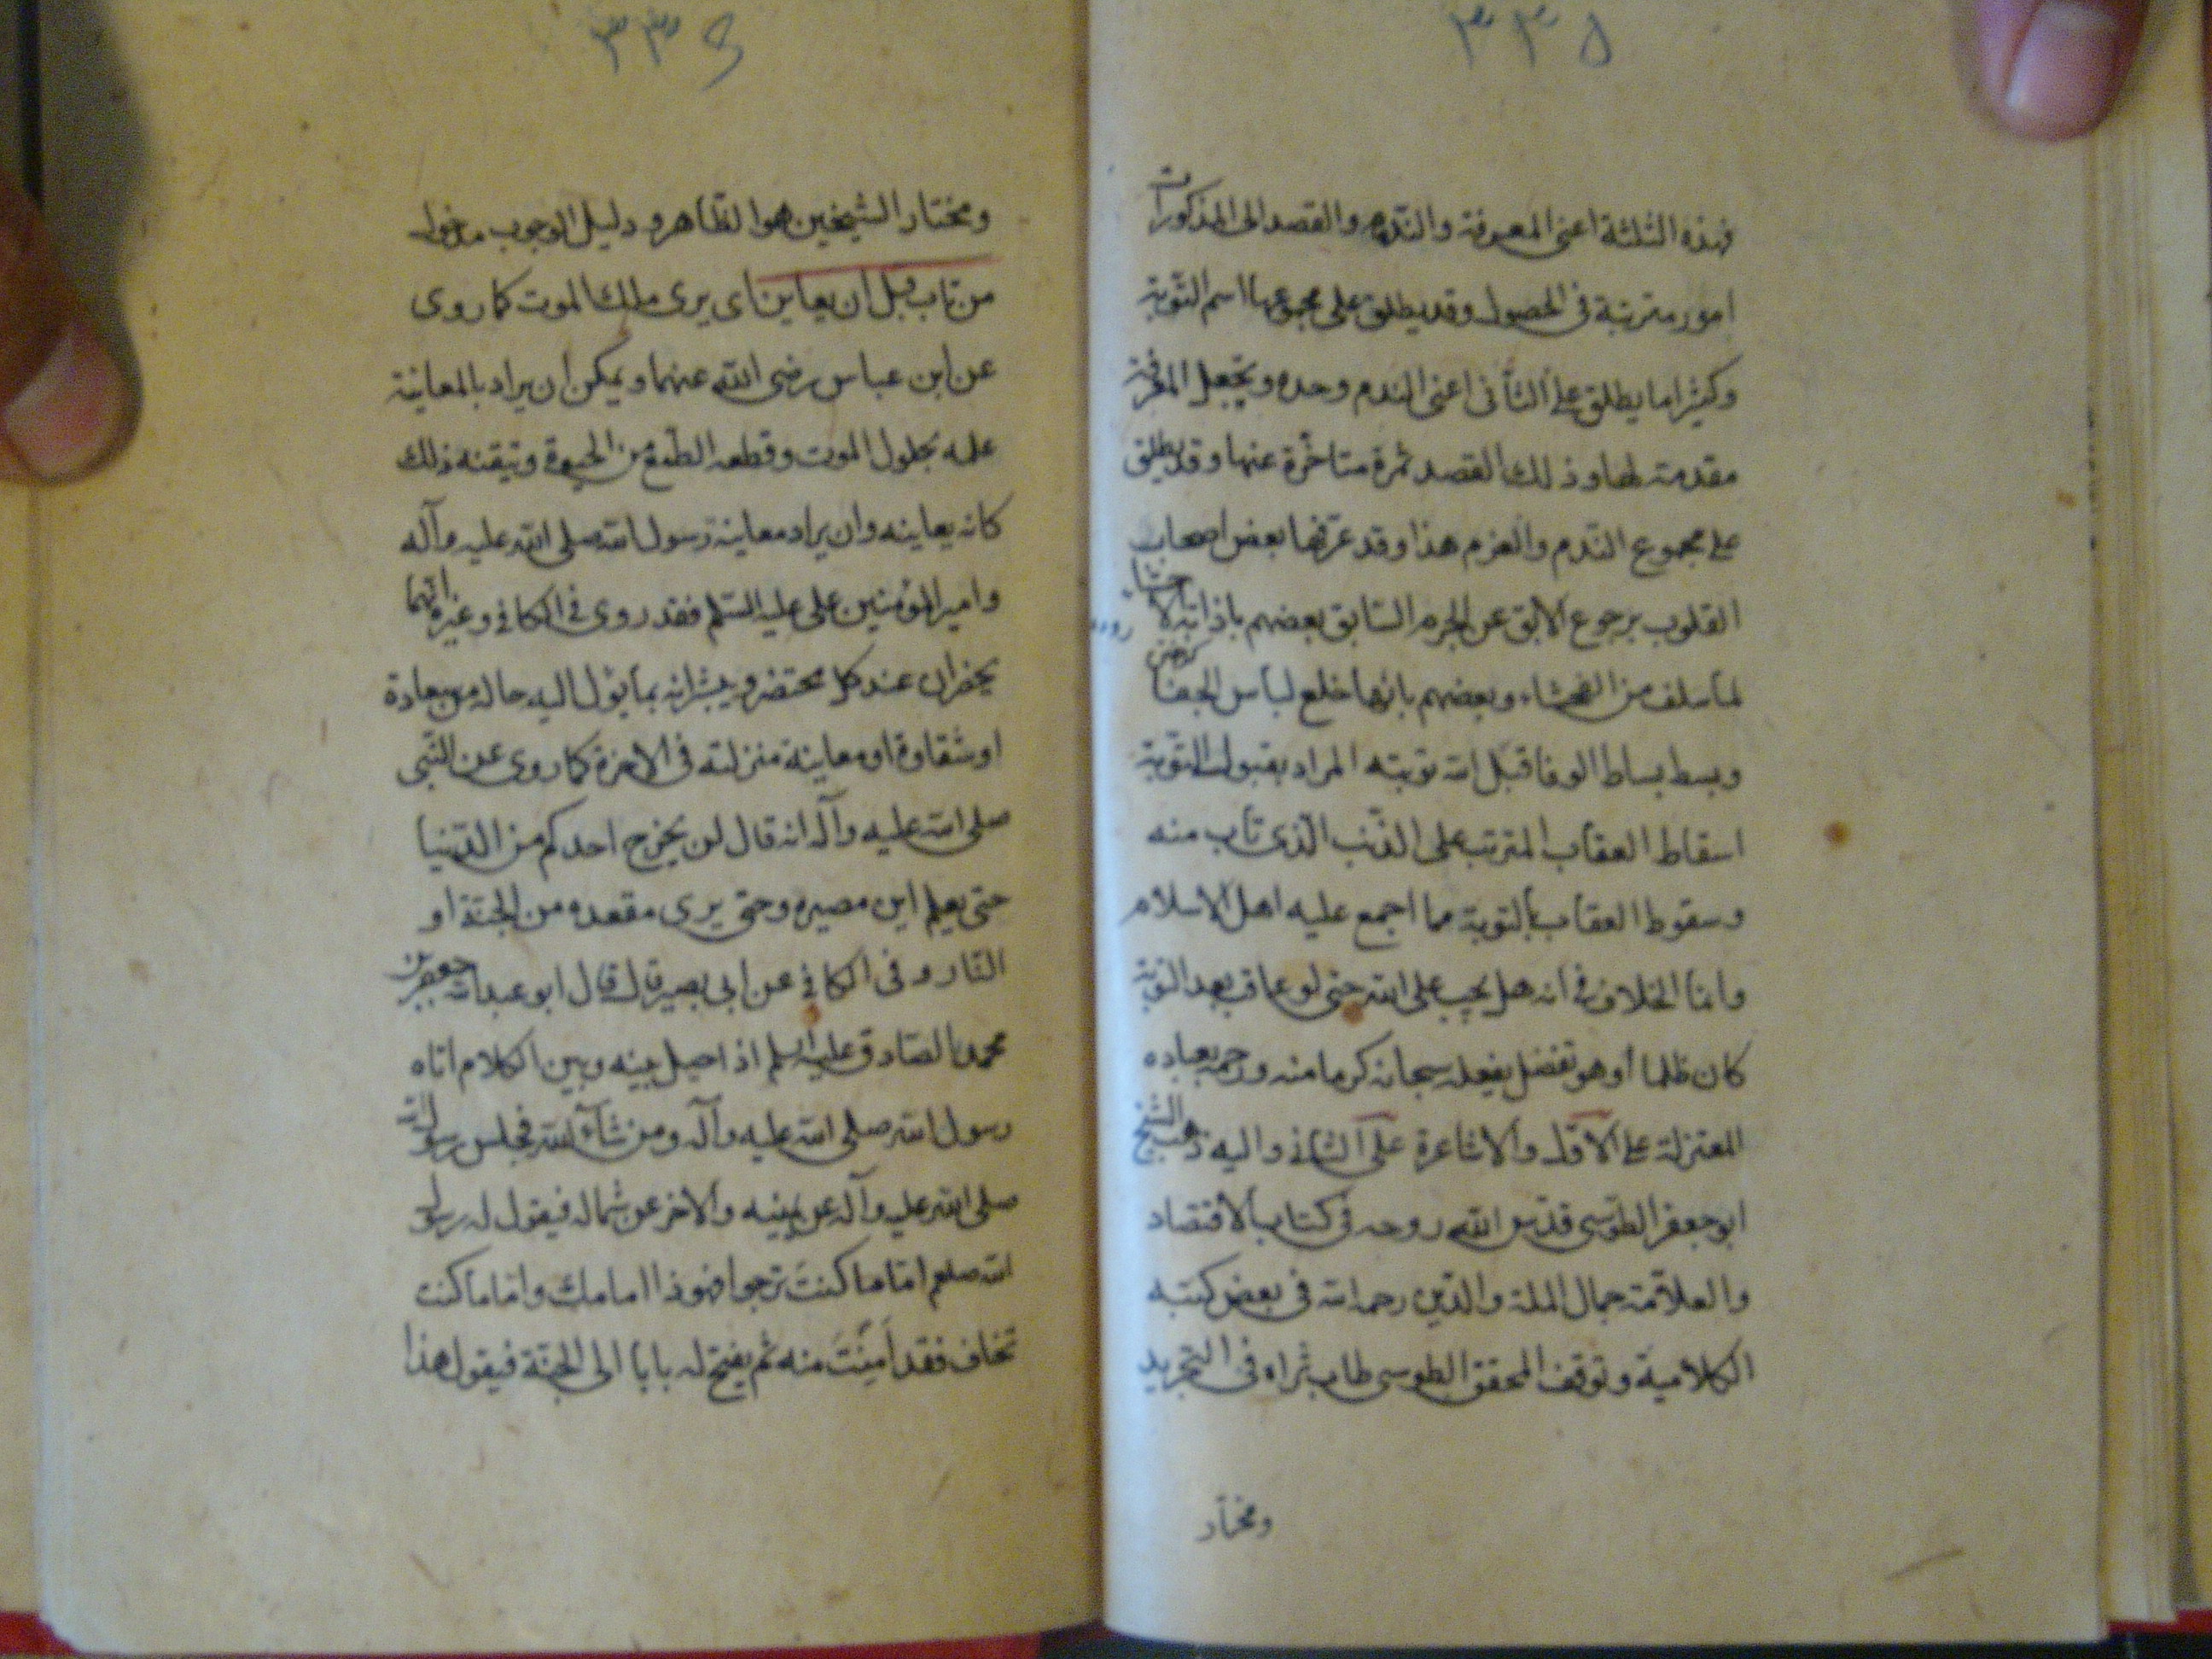 ٣٣٨
فهذه الثلثة اعنى المعرفة والندم والقصد الى المذكورات
امور مترتبة فى الحصول وقد يطلق على مجموعها اسم التوبة
وكثيرا ما يطلق على الثانى اعنى الندم وحده وتجعل المعرفة
مقدمة لها وذلك القصد ثمرة متاخرة عنها وقد يطلق
على مجموع الندم والعزم هذا وقد عرفها بعض اصحاب
القلوب برجوع الابق عن الجرم السابق بعضهم باذابة الاحشاء
لما سلف من الفحشاء وبعضهم بانها خلع لباس الجفا
وبسط بساط الوفا قبل الله توبته المراد بقبول التوبة
اسقاط العقاب المترتب على الذنب الذى تاب منه
وسقوط العقاب بالتوبة مما اجمع عليه اهل الاسلام
وانما الخلاف فى انه هل يجب على الله حتى لو عاقب بعد التوبة
كان ظلما او هو تفضل يفعله سبحانه كرما منه ورحمة بعباده
المعتزلة على الاول والاشاعرة على الثانى واليه ذهب الشيخ
ابو جعفر الطوسى قدس الله روحه فى كتاب الاقتصاد
والعلامة جمال الملة والدين رحمه الله فى بعض كتبه
الكلامية وتوقف المحقق الطوسى طاب ثراه فى التجريد
ومختار
٣٣٩
ومختار الشيخين هو الظاهر ودليل الوجوب مدخول
من تاب قبل ان يعاين اى يرى ملك الموت كما روى
عن ابن عباس رضى الله عنهما ويمكن ان يراد بالمعاينة
علمه بحلول الموت وقطعه الطمع من الحيوة وتيقنه ذلك
كانه يعاينه وان يراد معاينة رسول الله صلى الله عليه وآله
وامير المؤمنين على عليه السلم فقد روى فى الكافى وغيره انهما
يحضران عند كل محتضر ويبشرانه بما يؤل اليه حاله من سعادة
او شقاوة او معاينة منزلته فى الاخرة كما روى عن النبى
صلى الله عليه وآله انه قال لن يخرج احدكم من الدنيا
حتى يعلم اين مصيره وحتى يرى مقعده من الجنة او
النار وفى الكافى عن ابى بصير قال قال ابو عبدالله جعفر بن
محمد الصادق عليه السلم اذا حيل بينه وبين الكلام اتاه
رسول الله صلى الله عليه وآله ومن شآء الله فجلس رسول الله
صلى الله عليه وآله عن يمينه والاخر عن شماله فيقول له رسول
الله صلعم اما ما كنت ترجوا فهو ذا امامك واما ما كنت
تخاف فقد اَمِنْتَ منه ثم يفتح له بابا الى الجنة فيقول هذا